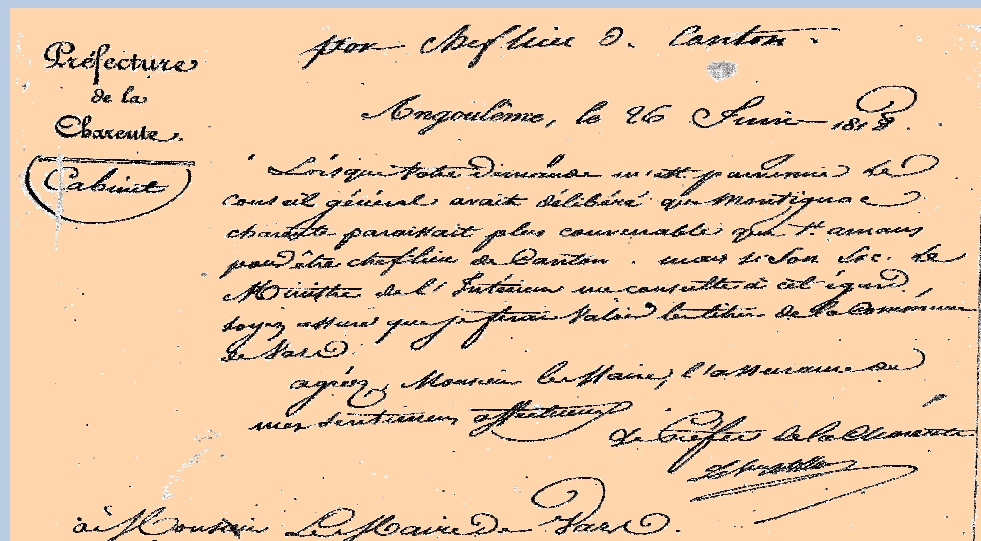 pour chef lieu de Canton.
Préfecture
de la
Charente.
Cabinet
Angoulême, le 26 Juin 1818.
Lorsque votre demande m'est parvenue le
conseil général avait délibéré que Montignac
charente paraissait plus convenable que St. amans
pour être chef lieu de Canton. mais si Son Exc. Le
Ministre de l'Intérieur me consulte à cet égard
soyez assuré que je ferai valoir les titres de la Commune
de Vars.
agréez, Monsieur le Maire, l'assurance de
mes sentimens affectueux
Le Préfet de la Charente
à Monsieur Le Maire de Vars.